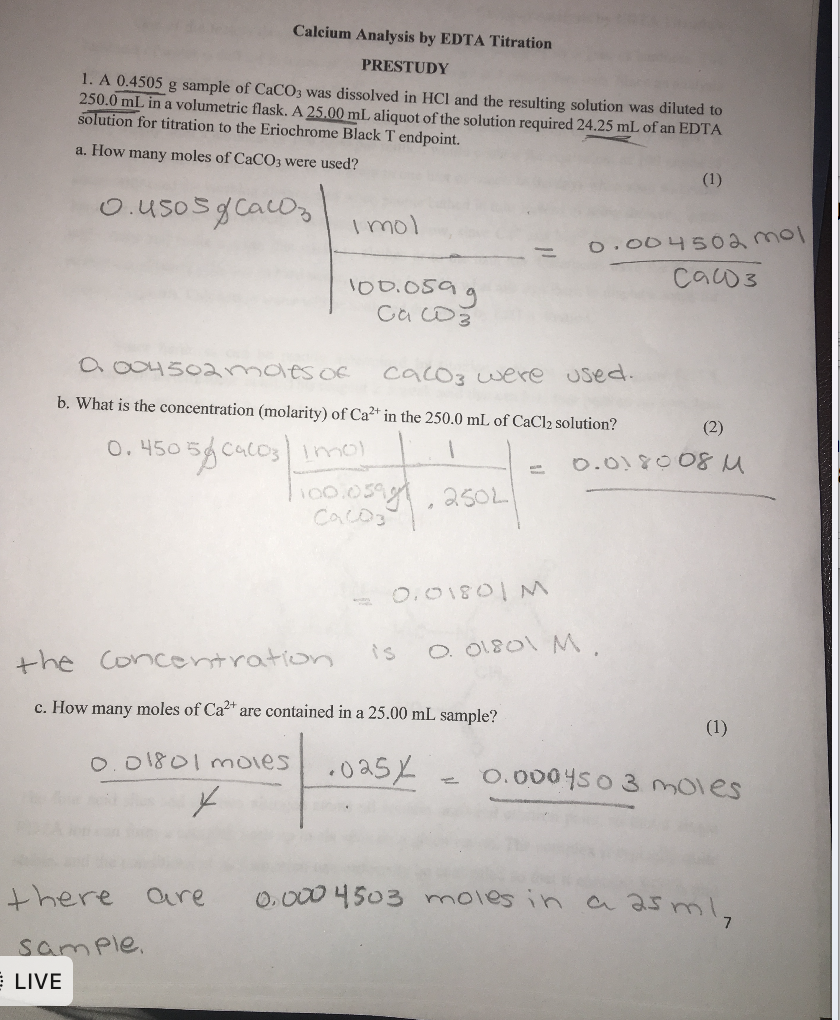 Calcium Analysis by EDTA Titration
PRESTUDY
1. A 0.4505 g sample of CaCO₃ was dissolved in HCl and the resulting solution was diluted to
250.0 mL in a volumetric flask. A 25.00 mL aliquot of the solution required 24.25 mL of an EDTA
solution for titration to the Eriochrome Black T endpoint.
a. How many moles of CaCO₃ were used?
(1)
0.4505 g CaCO₃ | 1 mol = 0.004502 mol
100.059 g CaCO₃
CaCO₃
0.004502 moles of CaCO₃ were used.
b. What is the concentration (molarity) of Ca²⁺ in the 250.0 mL of CaCl₂ solution?
(2)
0.4505 g CaCO₃ | 1 mol | 1 = 0.018008 M
100.059 g | .250L
CaCO₃
= 0.01801 M
the concentration is 0.01801 M.
c. How many moles of Ca²⁺ are contained in a 25.00 mL sample?
(1)
0.01801 moles | .025 L = 0.0004503 moles
L
there are 0.0004503 moles in a 25 ml
7
sample.
LIVE